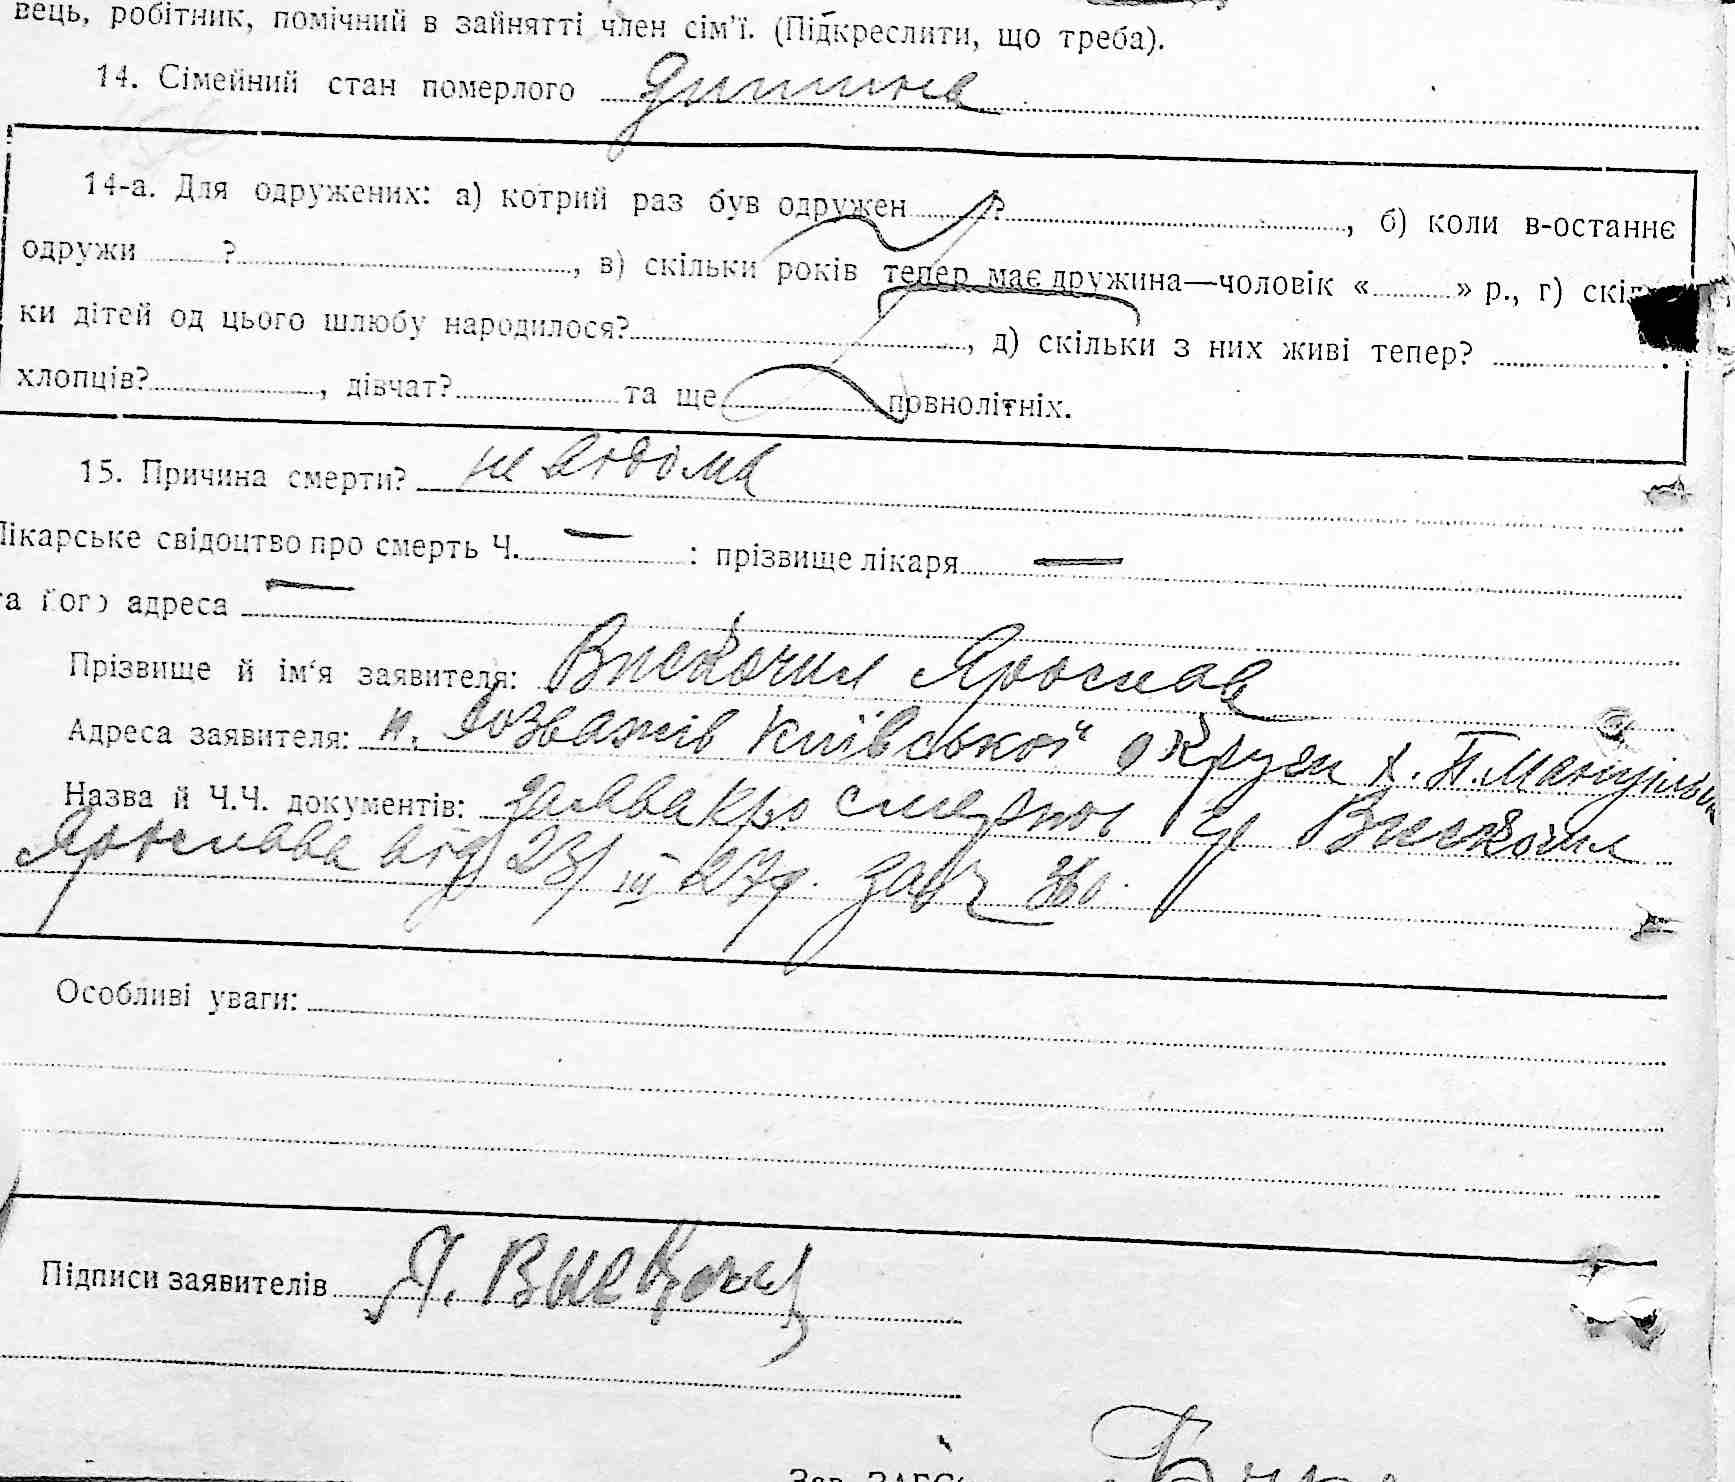 вець, робітник, помічний в зайнятті член сім'ї. (Підкреслити, що треба).
14. Сімейний стан померлого дитина
14-а. Для одружених: а) котрий раз був одружен ?, б) коли в-останнє
одружи ?, в) скільки років тепер має дружина—чоловік « » р., г) скіль
ки дітей од цього шлюбу народилося?, д) скільки з них живі тепер? .
хлопців?, дівчат? та ще повнолітніх.
15. Причина смерти? не відома
Лікарське свідоцтво про смерть Ч. — : прізвище лікаря —
та його адреса —
Прізвище й ім'я заявителя: Вискочил Ярослав
Адреса заявителя: Розважів Київської округи х.
Назва й Ч.Ч. документів: заява про смерть гр Вискочил
Ярослава від 23/III 27р. за ч
Особливі уваги:
Підписи заявителів Я. Выскочил
Зав. ЗАГС